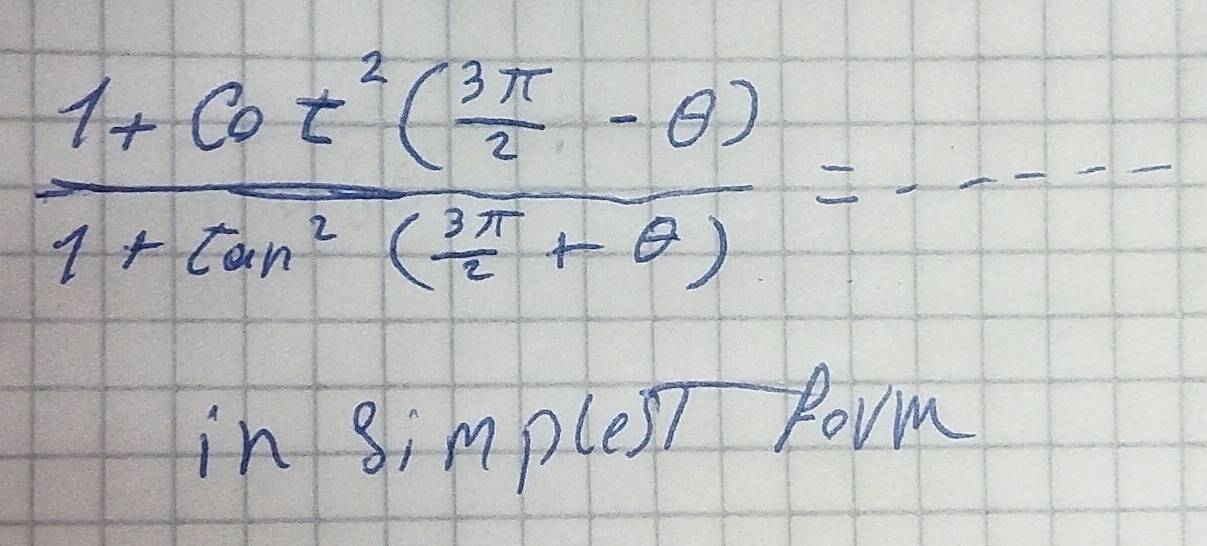 1 + Cot² (3π/2 - θ)
1 + tan² (3π/2 + θ) = -----
in simplest form